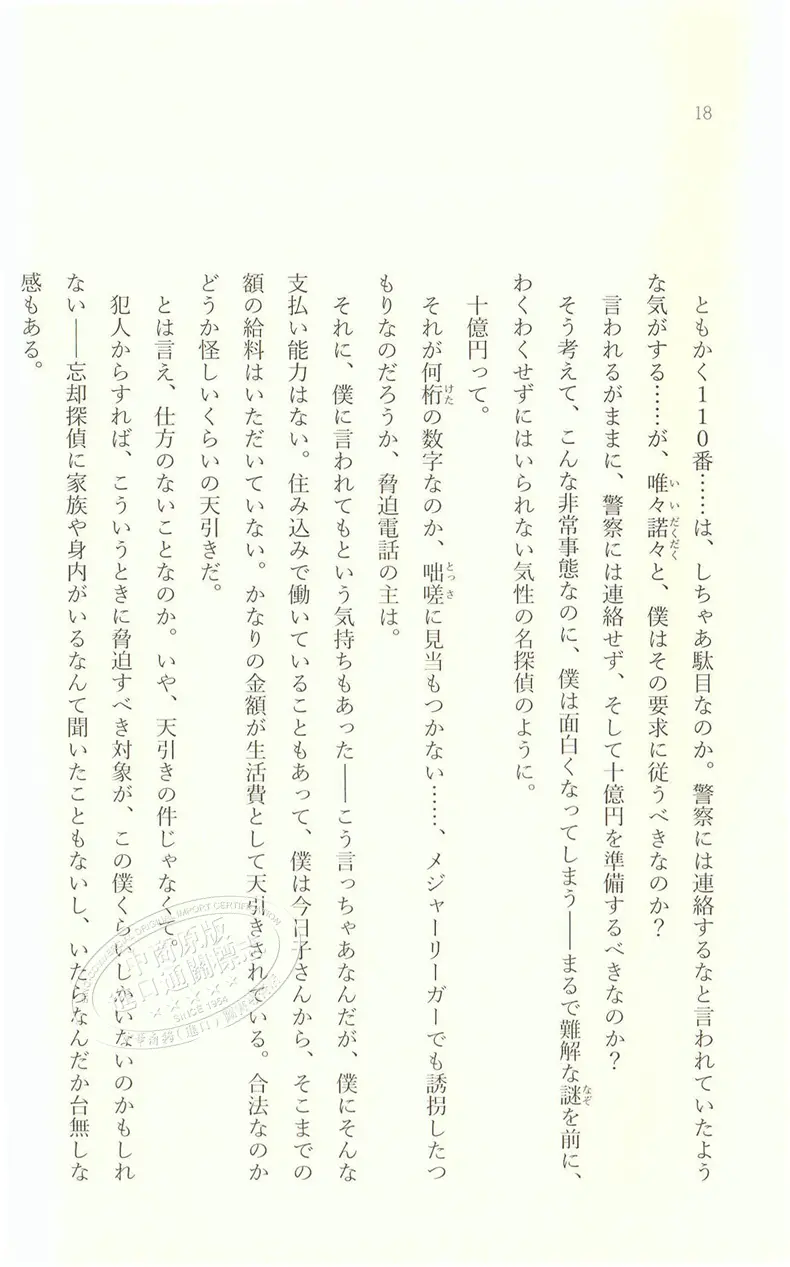 18
ともかく110番……は、しちゃあ駄目なのか。警察には連絡するなと言われていたよう
な気がする……が、唯々諾々と、僕はその要求に従うべきなのか？
言われるがままに、警察には連絡せず、そして十億円を準備するべきなのか？
そう考えて、こんな非常事態なのに、僕は面白くなってしまう――まるで難解な謎を前に、
わくわくせずにはいられない気性の名探偵のように。
十億円って。
それが何桁の数字なのか、咄嗟に見当もつかない……、メジャーリーガーでも誘拐したつ
もりなのだろうか、脅迫電話の主は。
それに、僕に言われてもという気持ちもあった――こう言っちゃあなんだが、僕にそんな
支払い能力はない。住み込みで働いていることもあって、僕は今日子さんから、そこまでの
額の給料はいただいていない。かなりの金額が生活費として天引きされている。合法なのか
どうか怪しいくらいの天引きだ。
とは言え、仕方のないことなのか。いや、天引きの件じゃなくて。
犯人からすれば、こういうときに脅迫すべき対象が、この僕くらいしかいないのかもしれ
ない――忘却探偵に家族や身内がいるなんて聞いたこともないし、いたらなんだか台無しな
感もある。
いいだくだく
けた
とっさ
なぞ
中商原版
進口通關標志
SINCE 1954